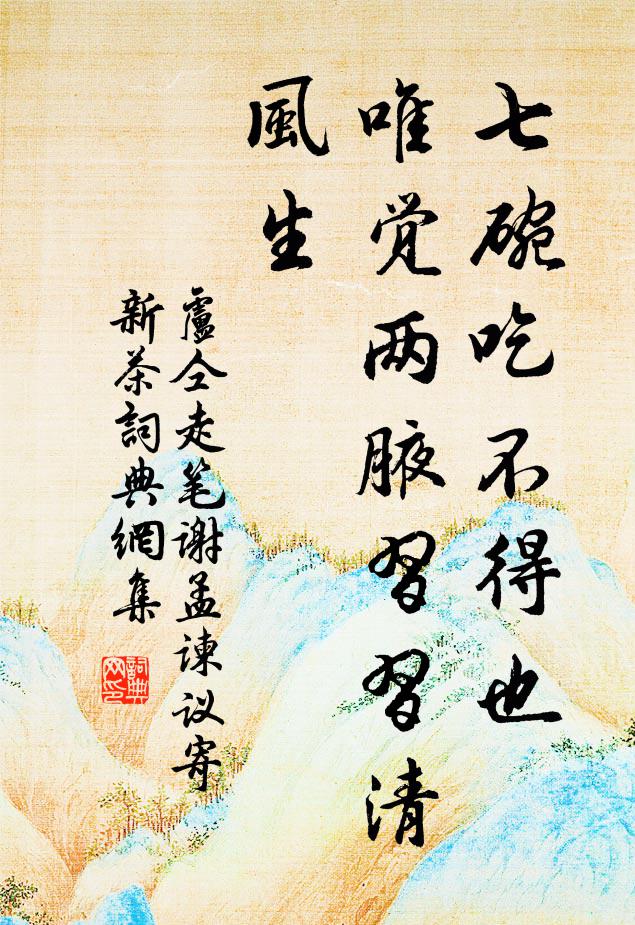 七碗吃不得也
唯觉两腋習習清
風生
盧仝走笔谢孟谏议寄
新茶詞典網集
詞典
网印